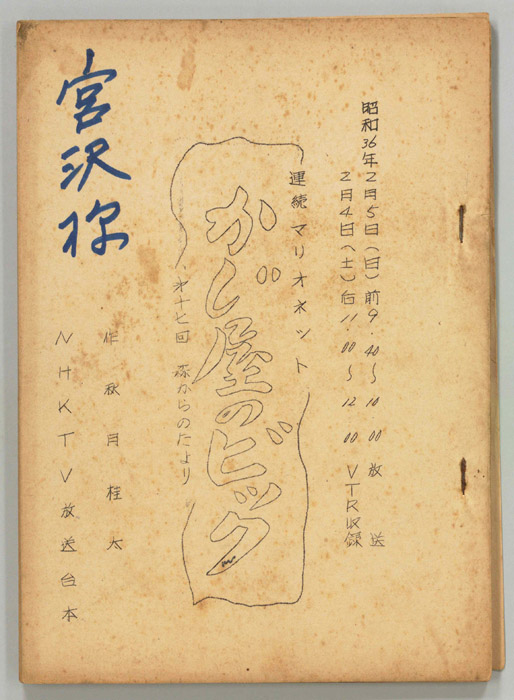 昭和36年2月5日(日)前9.40～10.00放送
2月4日(土)后11.00～12.00 VTR収録
連続マリオネット
かじ屋のビック
㐧十七回 森からのたより
作 秋月桂太
NHKTV放送台本
宮沢様